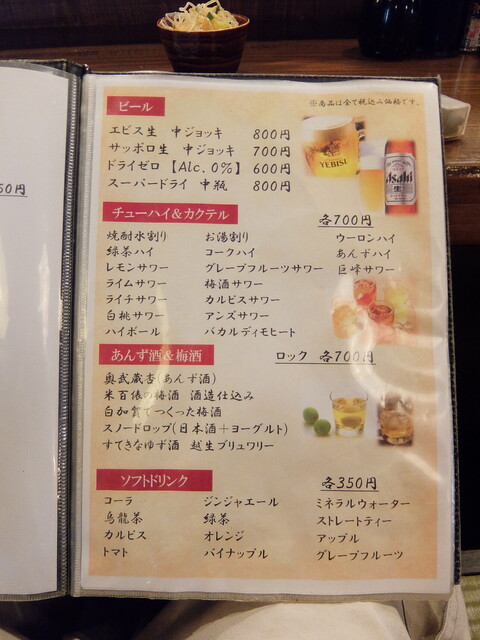 ※商品は全て税込み価格です。
ビール
エビス生 中ジョッキ 800円
サッポロ生 中ジョッキ 700円
ドライゼロ【Alc.0%】 600円
スーパードライ 中瓶 800円
YEBISU
Asahi
生
チューハイ&カクテル 各700円
焼酎水割り お湯割り ウーロンハイ
緑茶ハイ コークハイ あんずハイ
レモンサワー グレープフルーツサワー 巨峰サワー
ライムサワー 梅酒サワー
ライチサワー カルピスサワー
白桃サワー アンズサワー
ハイボール バカルディモヒート
あんず酒&梅酒 ロック 各700円
奥武蔵杏(あんず酒)
米百俵の梅酒 酒造仕込み
白加賀でつくった梅酒
スノードロップ(日本酒+ヨーグルト)
すてきなゆず酒 越生ブリュワリー
ソフトドリンク 各350円
コーラ ジンジャエール ミネラルウォーター
烏龍茶 緑茶 ストレートティー
カルピス オレンジ アップル
トマト パイナップル グレープフルーツ
50円